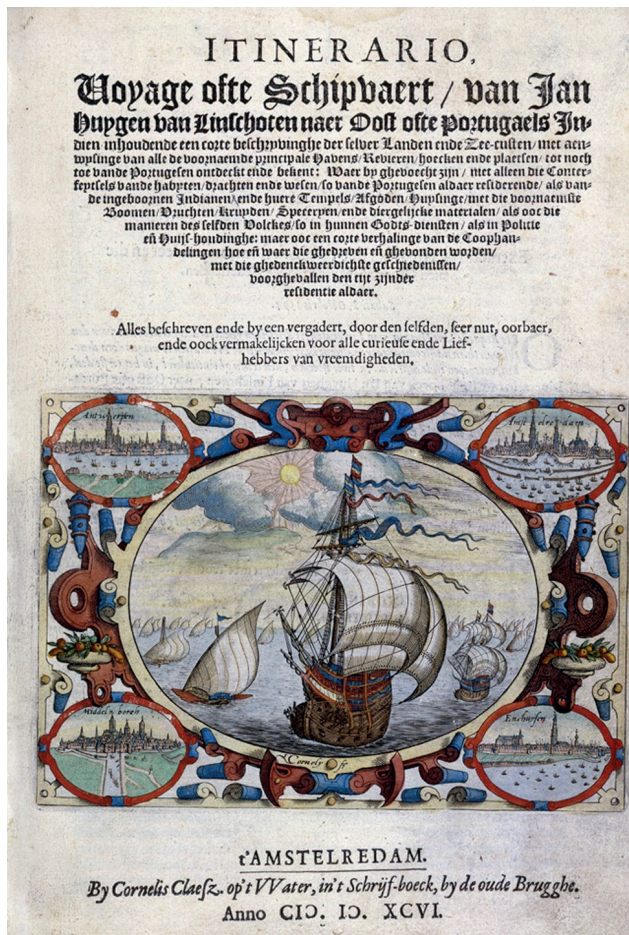 ITINERARIO,
Voyage ofte Schipvaert / van Jan
Huygen van Linschoten naer Oost ofte Portugaels In-
dien inhoudende een corte beschryvinghe der selver Landen ende Zee-custen / met aen-
wysinge van alle de voornaemde principale Havens / Revieren / hoecken ende plaetsen / tot noch
toe vande Portugesen ontdeckt ende bekent: Waer by ghevoecht zijn / niet alleen die Conter-
feytsels vande habyten / drachten ende wesen / so vande Portugesen aldaer residerende / als van-
de ingeboornen Indianen / ende huere Tempels / Afgoden / Huysinge / met die voornaemste
Boomen / Vruchten / Kruyden / Speceryen / ende diergelijcke materialen / als ooc die
manieren des selfden Volckes / so in hunnen Godts-diensten / als in Politie
eñ Huijs-houdinghe: maer ooc een corte verhalinge van de Coophan-
delingen hoe eñ waer die ghedreven eñ ghevonden worden /
met die ghedenckweerdichste geschiedenissen /
voorghevallen den tijt zijnder
residentie aldaer.
Alles beschreven ende by een vergadert, door den selfden, seer nut, oorbaer,
ende oock vermakelijcken voor alle curieuse ende Lief-
hebbers van vreemdigheden.
Antwerpen
Amstelredam
Middelborch
Enchuysen
t'AMSTELREDAM.
By Cornelis Claesz. op't VVater, in't Schrijf-boeck, by de oude Brugghe.
Anno CIↃ. IↃ. XCVI.